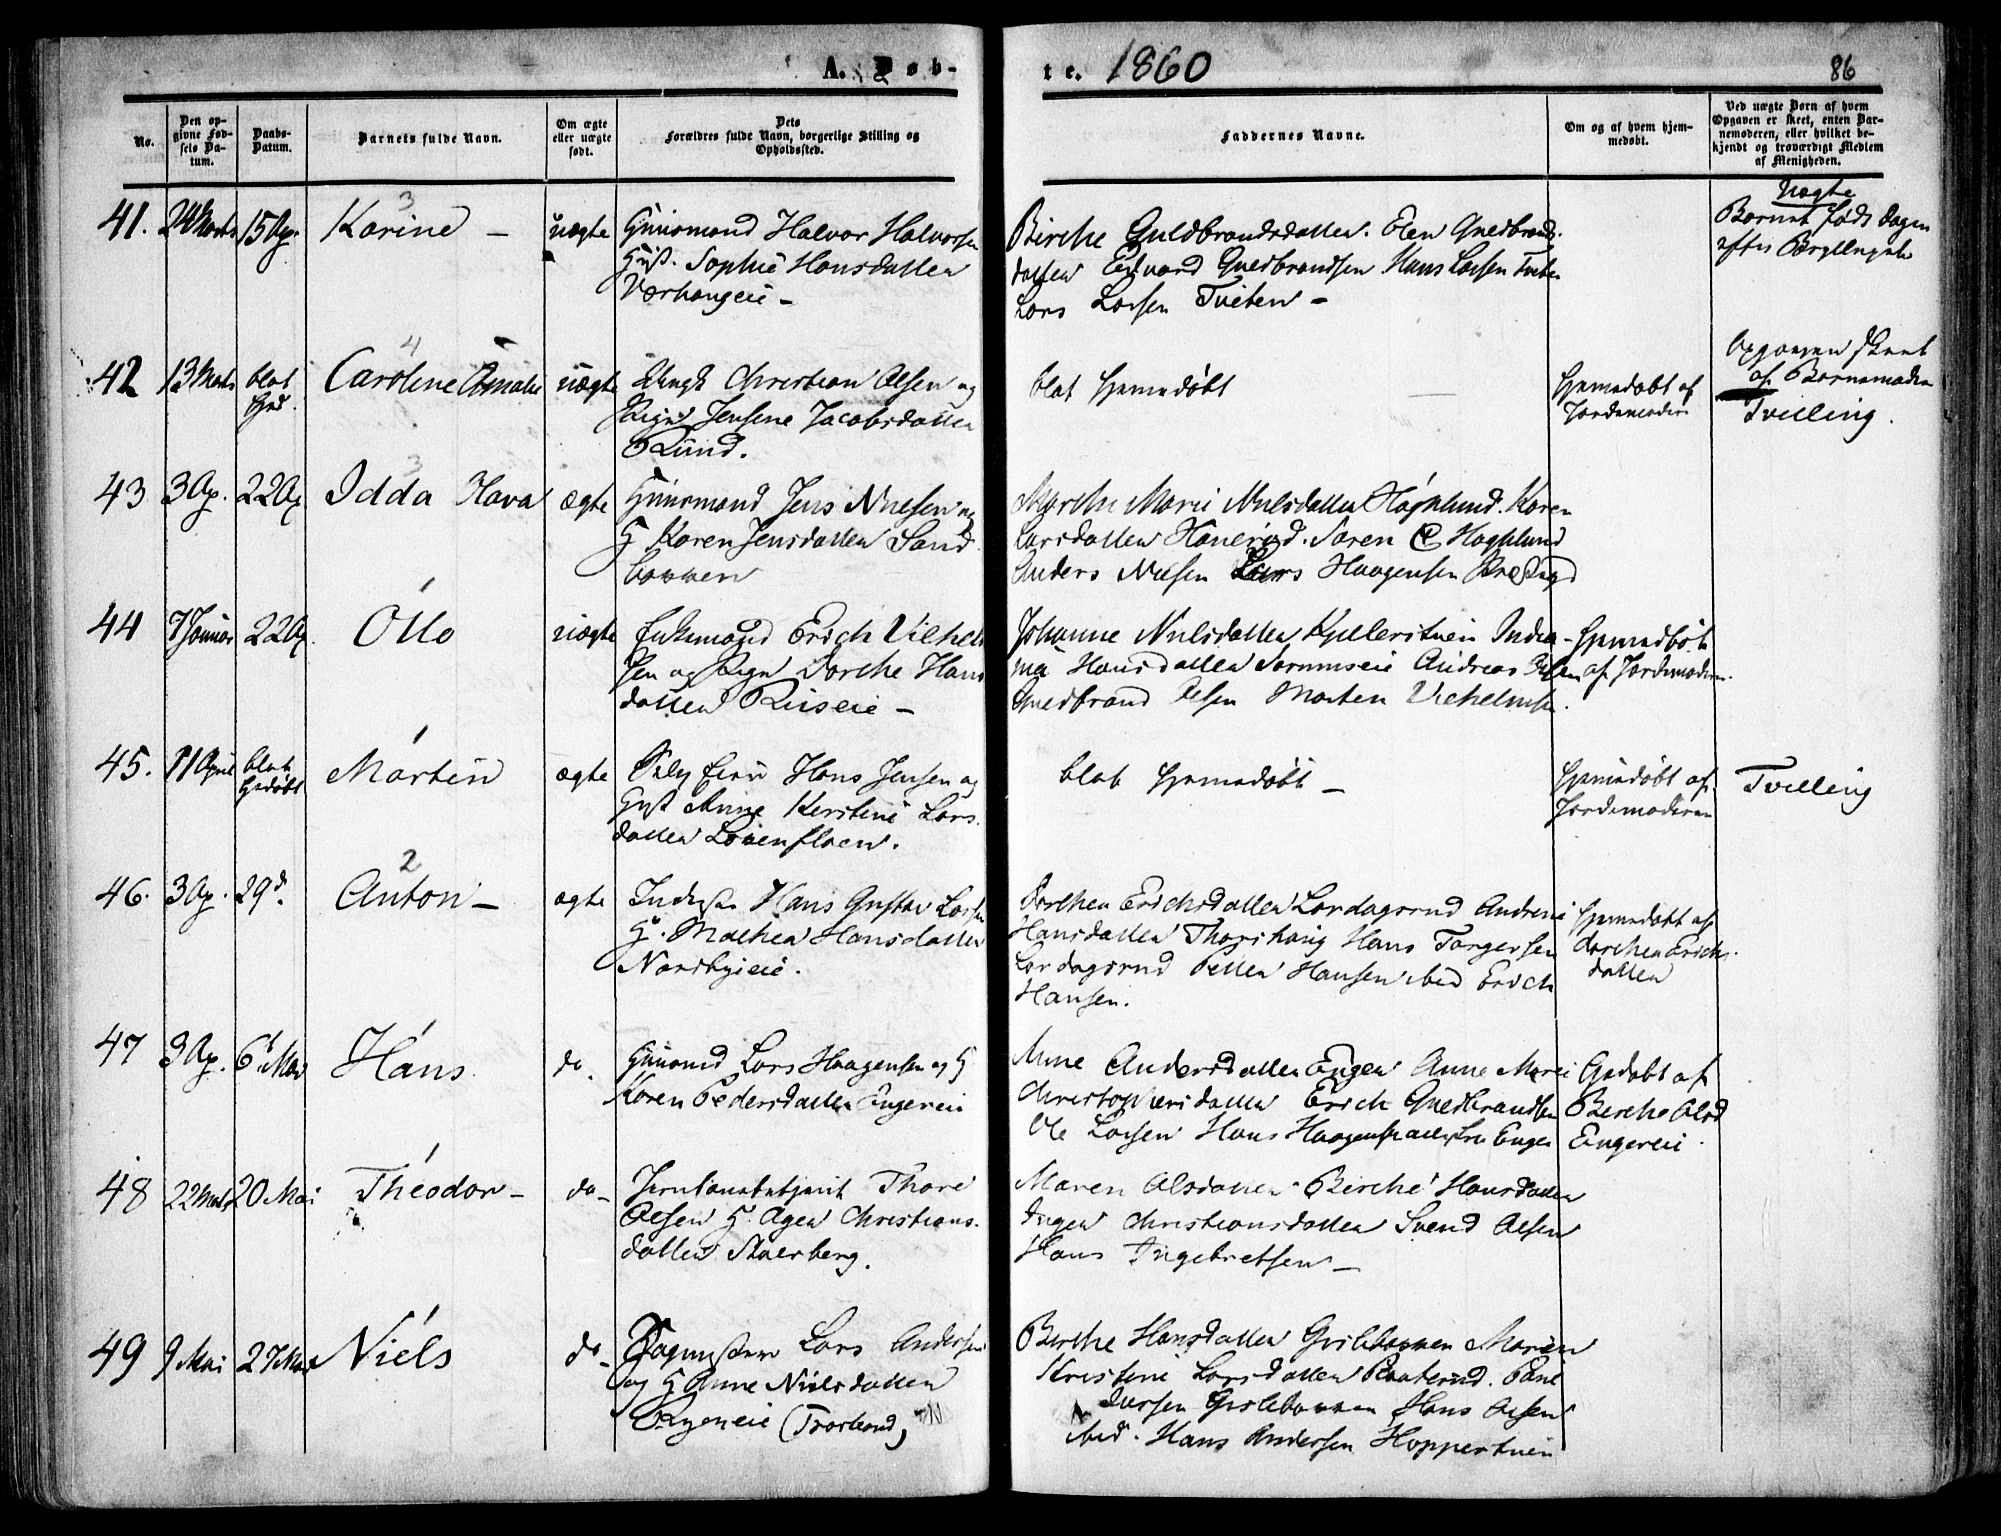 A. Døb-
te. 1860
86
No.
Den op-
givne Fød-
sels Da-
tum.
Daabs-
Datum.
Barnets fulde Navn.
Om ægte
eller uægte
født.
Dets
Forældres fulde Navn, borgerlige Stilling og
Opholdssted.
Faddernes Navne.
Om og af hvem hjem-
medøbt.
Ved uægte Børn af hvem
Opgaven er skeet, enten Bar-
nemoderen, eller hvilket be-
kjendt og troværdigt Medlem
af Menigheden.
41. 24 Marts 15 Ap. Karine – uægte
3
Huusmand Halvor Halvorsen
Hust. Sophie Hansdatter
Værhaugeie –
Birthe Guldbrandsdatter. Elen Guldbrands-
datter Edvard Guldbrandsen Hans Larsen Tveter
Lars Larsen Tveten –
Uægte
Barnet føds dagen
efter
42 13 Marts blot Hjd. Caroline Amalie uægte
4
Ungk Christian Olsen og
Pige Jensine Jacobsdatter
Lund.
blot Hjemmedøbt
Hjemmedøbt af
Jordemoder
Opgaven skeet
af Barnemoderen
Tvilling.
43 3 Ap. 22 Ap Idda Hava ægte
3
Huusmand Jens Nielsen og
H Karen Jensdatter Sand
bakken
Marthe Marie Nielsdatter Høghlund. Karen
Larsdatter Hanerud. Søren C Høghlund
Anders Nielsen Lars Haagensen
44 7 Januar 22 Ap. Otto uægte
1
Enkemand Erich Vilhelm
sen og Pige Dorthe Hans
datter Riiseie –
Johanne Nielsdatter Andrea –
Hansdatter Andreas Olsen
Guldbrand Olsen Morten Vilhelmsen.
Hjemmedøbt
af Jordemoderen.
45. 11 April blot Hjdøbt Martin ægte
1
Selveier Hans Jensen og
Hust Anne Kerstine Lars
datter Løvenfloen.
blot hjemmedøbt –
Hjemmedøbt af
Jordemoderen
Tvilling
46. 3 Ap. 29 d. Anton – ægte
2
Inderst Hans Gustav Larsen
H. Mathea Hansdatter
Nordbyeie.
Dorthea Erichsdatter Lørdagsrud Andrine
Hansdatter Thorshaug Hans Torgersen
Lørdagsrud Petter Hansen ibid Erich
Hansen.
Hjemmedøbt af
Dorthea Erichs-
datter
47 3 Ap. 6 Mai Hans do.
1
Huusmd Lars Haagensen og H
Karen Pedersdatter Engereie
Anne Andersdatter Engen Anne Marie
Christophersdatter Erich Guldbrandsen
Ole Larsen Hans Haagensen Engen
Hjdøbt af
Berthe Olsd
Engereie.
48 22 Marts 20 Mai Theodor – do –
1
Jernbanebetjent Thore
Olsen H. Agen Christians-
datter Skulerberg.
Maren Olsdatter Birthe Hansdatter
Ingen Christiansdatter Svend Olsen
Hans Ingebretsen –
49 9 Mai 27 Mai Niels do –
1
Lars Andersen
og H Anne Nielsdatter
(Trosterud)
Berthe Hansdatter Gislebakken Maren
Kirstine Larsdatter Plasterud.
Gislebakken Hans Olsen
ibid. Hans Andersen Hoppertuen